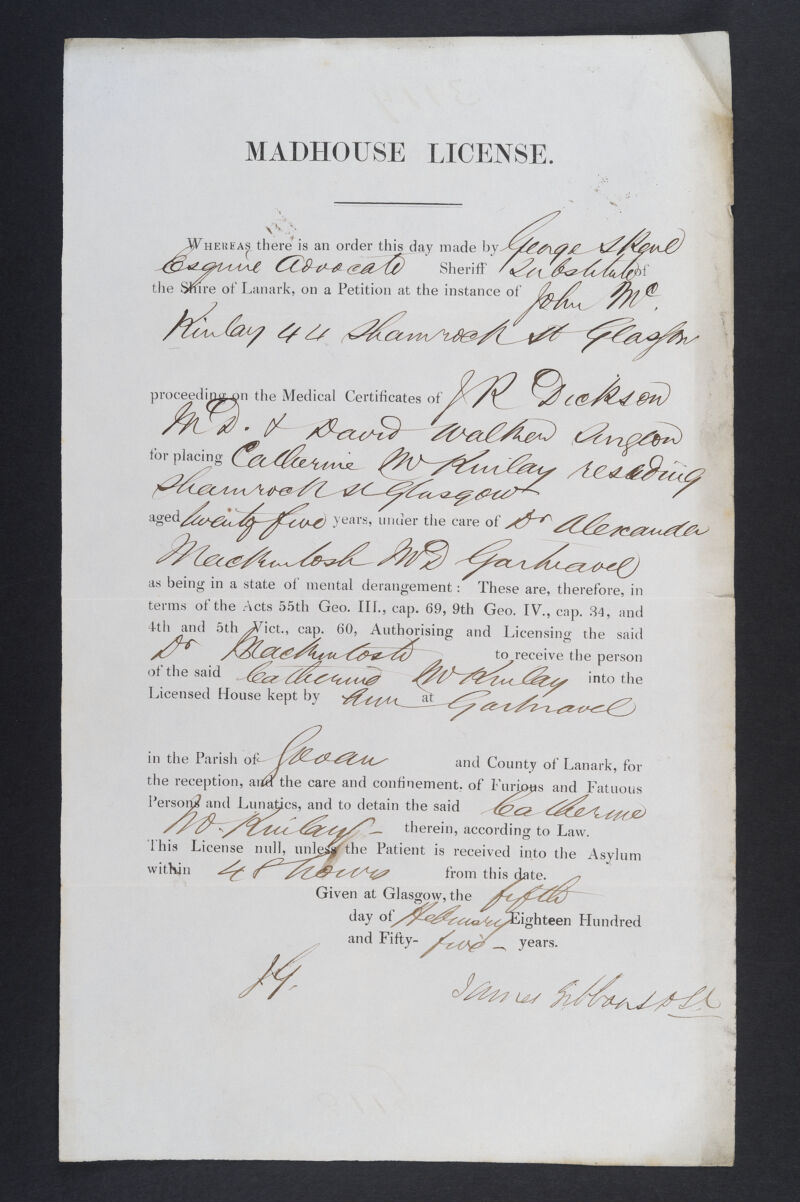 MADHOUSE LICENSE.
WHEREAS there is an order this day made by George Skene
Esquire Advocate Sheriff Substitute of
the Shire of Lanark, on a Petition at the instance of John Mc
Kinlay 44 Shamrock St Glasgow
proceeding on the Medical Certificates of J R Dickson
MD. & David Walker Surgeon
for placing Catherine McKinlay residing
Shamrock St Glasgow
aged twenty five years, under the care of Dr Alexander
Mackintosh MD Gartnavel
as being in a state of mental derangement: These are, therefore, in
terms of the Acts 55th Geo. III., cap. 69, 9th Geo. IV., cap. 34, and
4th and 5th Vict., cap. 60, Authorising and Licensing the said
Dr Mackintosh to receive the person
of the said Catherine McKinlay into the
Licensed House kept by him at Gartnavel
in the Parish of Govan and County of Lanark, for
the reception, and the care and confinement, of Furious and Fatuous
Persons and Lunatics, and to detain the said Catherine
Mc.Kinlay – therein, according to Law.
This License null, unless the Patient is received into the Asylum
within 48 hours from this date.
Given at Glasgow, the fifth
day of February Eighteen Hundred
and Fifty- five – years.
James Gibbons